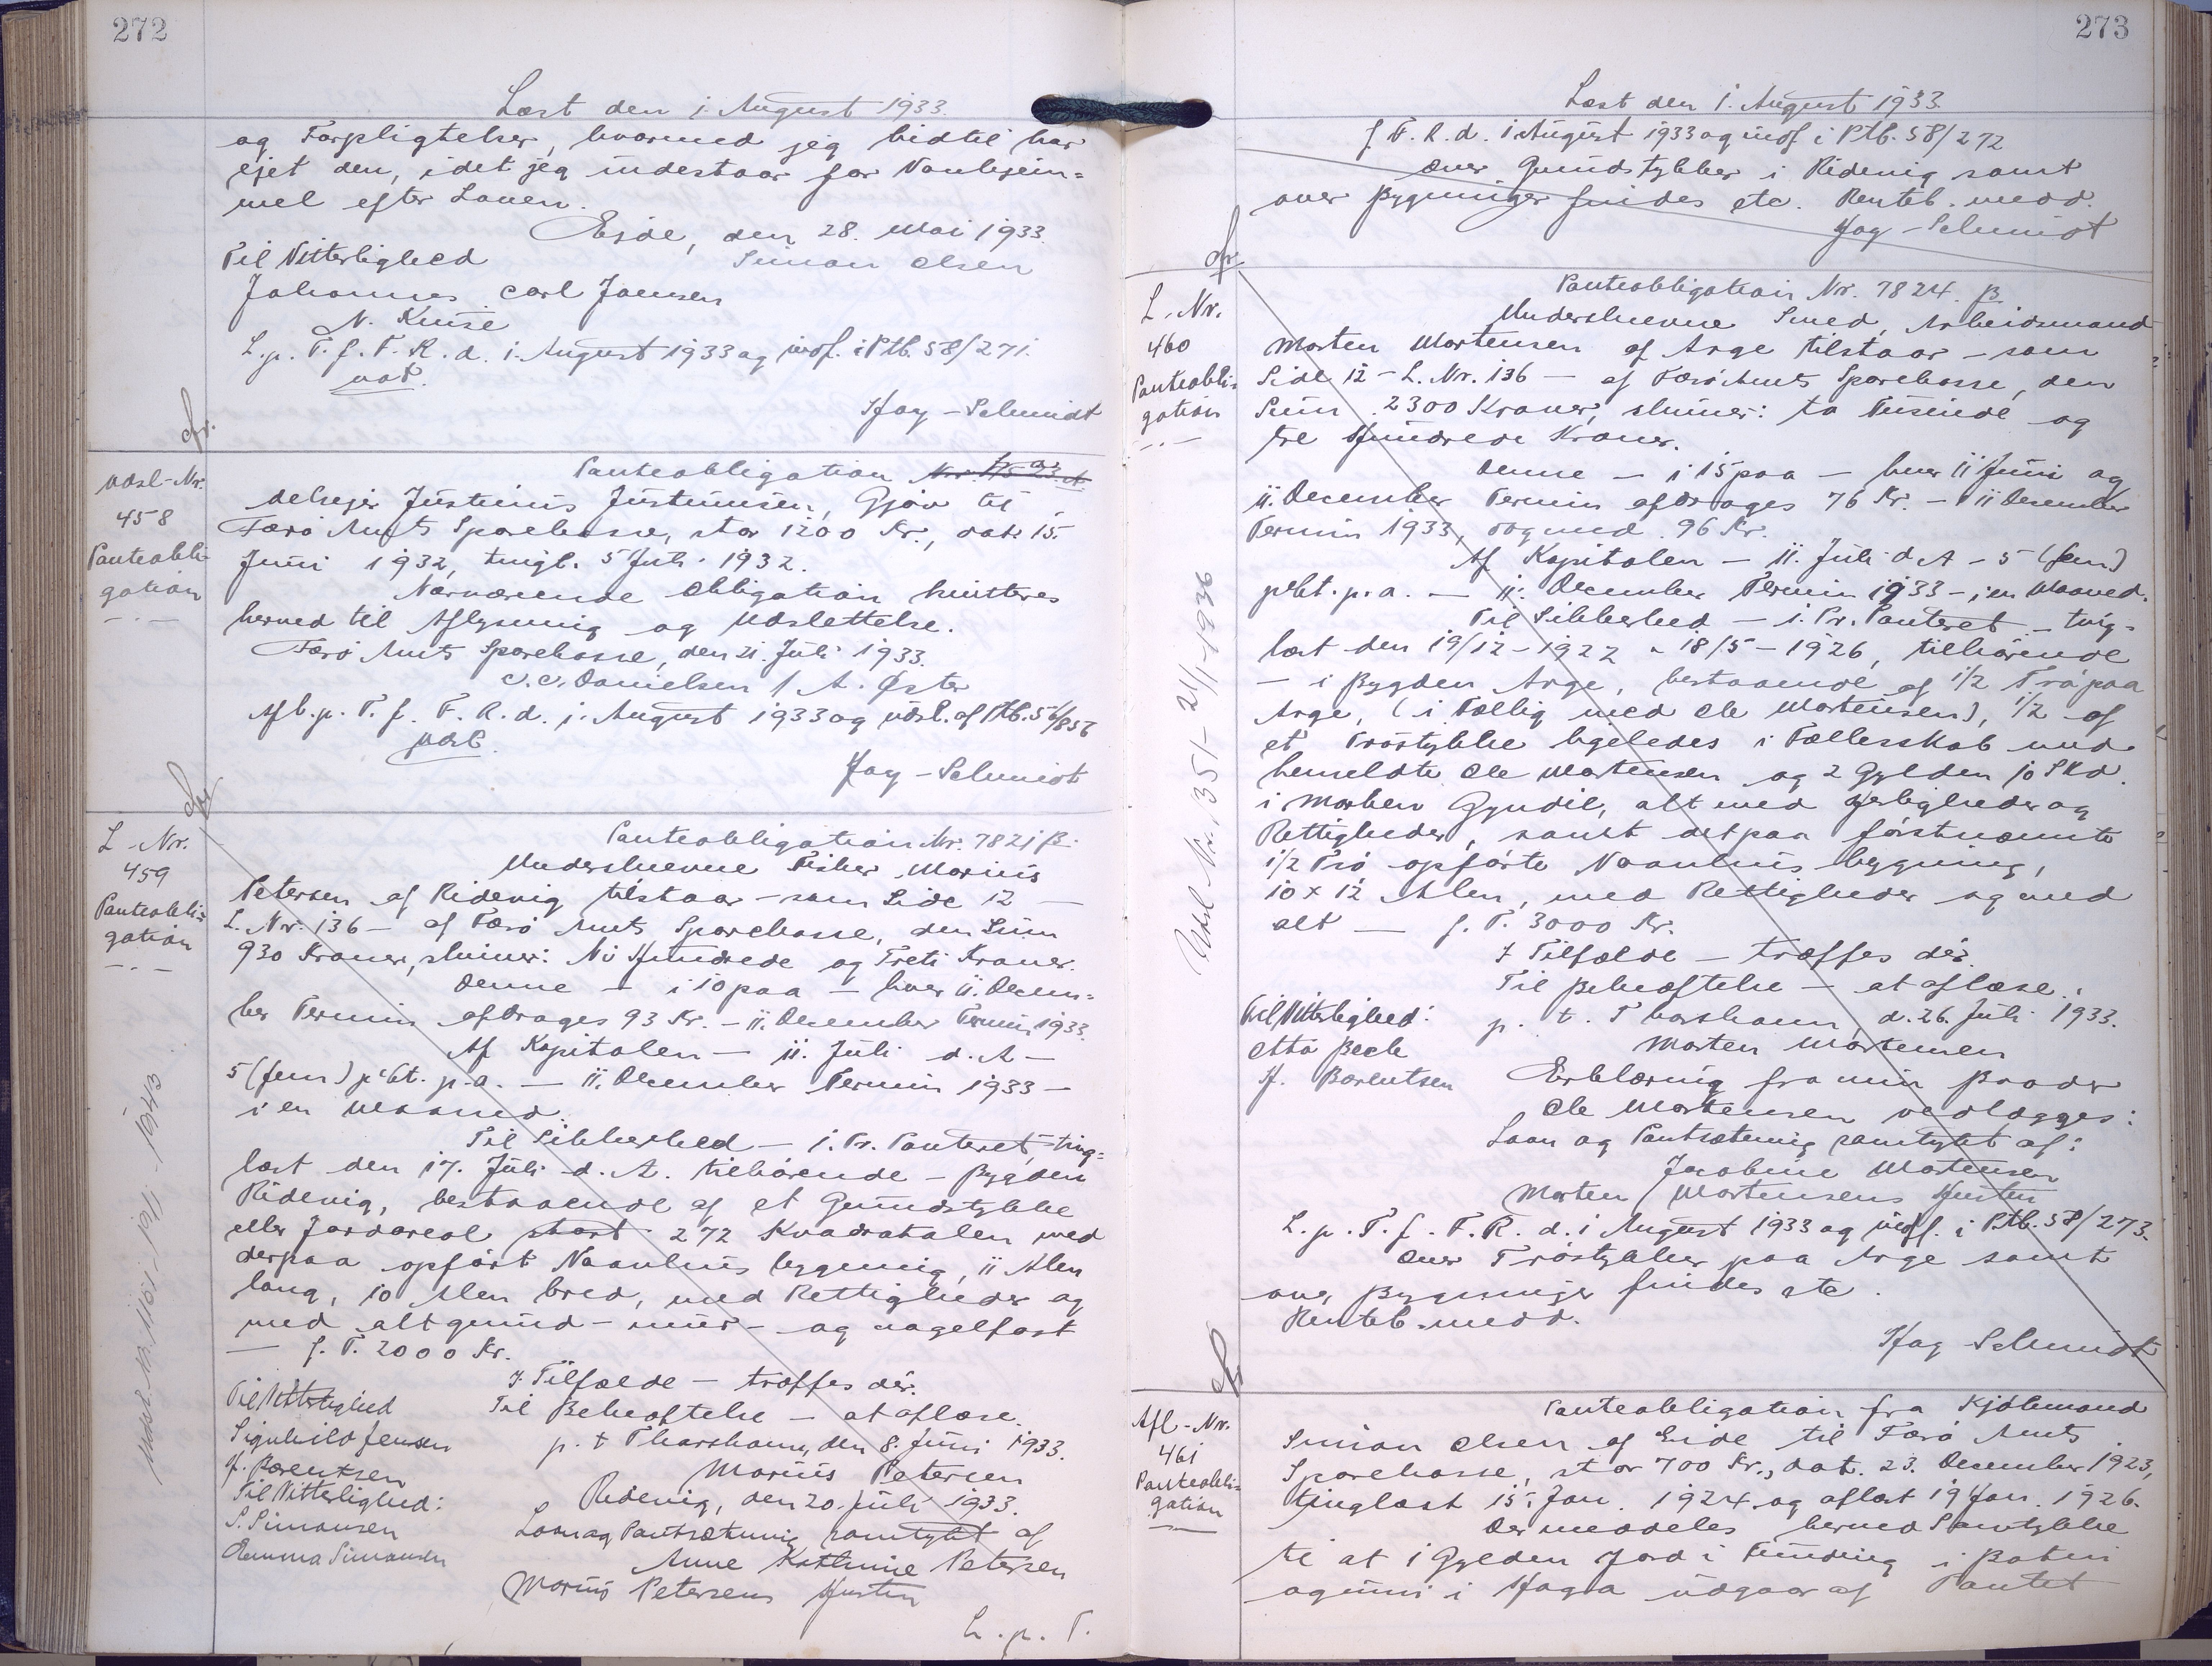 272
Læst den 1. August 1933.
og Forpligtelser, hvormed jeg hidtil har
ejet den, idet jeg indestaar for Vanhjem=
mel efter Loven.
Ejde, den 28. Mai 1933.
Til Vitterlighed
Simon Olsen
Johannes Carl Joensen
N. Kruse
L. p. T. f. F. R. d. 1. August 1933 og indf. i Ptb. 58/271.
Hay-Schmidt
Udsl-Nr.
458
Panteobli-
gation
Panteobligation
Justinus Justinussen, Gjov til
Færø Amts Sparekasse, stor 1200 Kr., dat. 15.
Juni 1932, tingl. 5 Juli 1932.
Nærværende Obligation kvitteres
herved til Aflysning og Udslettelse.
Færø Amts Sparekasse, den 21. Juli 1933.
C. C. Danielsen / A. Øster
Afl. p. T. f. F. R. d. 1. August 1933 og udsl. af Ptb. 56/856
Hay-Schmidt
L-Nr.
459
Panteobli=
gation
Panteobligation Nr. 7821 B.
Underskrevne Fisker Marius
Petersen af Ridevig tilstaar - som Side 12 -
L. Nr. 136 - af Færø Amts Sparekasse, den Sum
930 Kroner, skriver: Ni Hundrede og Treti Kroner.
Denne - i 10 paa - hver 11. Decem=
ber Termin afdrages 93 Kr. - 11. December Termin 1933.
Af Kapitalen - 11. Juli d. A -
5 (fem) pCt. p. a. - 11. December Termin 1933 -
i en Maaned.
Til Sikkerhed - 1. Pr. Panteret, ting=
læst den 17. Juli d. A. tilhørende - Bygden
Ridevig, bestaaende af et Grundstykke
eller Jordareal stort 272 Kvadratalen med
derpaa opført Vaanhus bygning, 11 Alen
lang, 10 Alen bred, med Rettigheder og
med alt grund- mur- og nagelfast
- f. T. 2000 Kr.
I Tilfælde - træffes der.
Til Bekræftelse - at aflæse.
Til Vitterlighed
p. t. Thorshavn, den 8. Juni 1933.
Siguhild Jensen
Marius Petersen
H. Børentsen
Til Vitterlighed:
Ridevig, den 20. Juli 1933.
S. Simonsen
Laan og Pantsætning samtykt af
Emma Simonsen
Anne Kathrine Petersen
Marius Petersens Hustru
L. p. T.
Udsl. Nr. 1101 - 19/1 - 1943
273
Læst den 1. August 1933.
f. F. R. d. 1 August 1933 og indf. i Ptb. 58/272
over Grundstykker i Ridevig samt
over Bygninger findes etc. Renteb. medd.
Hay-Schmidt
L-Nr.
460
Panteobli=
gation
Panteobligation Nr. 7824 B
Underskrevne Smed, Arbeidsmand
Morten Mortensen af Arge tilstaar - som
Side 12 - L. Nr. 136 - af Færø Amts Sparekasse, den
Sum 2300 Kroner, skriver: to Tusinde og
tre Hundrede Kroner.
Denne - i 15 paa - hver 11 Juni og
11. December Termin afdrages 76 Kr. - 11 December
Termin 1933, dog med 96 Kr.
Af Kapitalen - 11. Juli d A - 5 (fem)
pCt. p. a. - 11. December Termin 1933 - i en Maaned.
Til Sikkerhed - 1. Pr. Panteret - ting=
læst den 19/12-1922 - 18/5-1926, tilhørende
- i Bygden Arge, bestaaende af 1/2 Trø paa
Arge, (i Fællig med Ole Mortensen), 1/2 af
et Trøstykke ligeledes i Fællesskab med
bemeldte Ole Mortensen og 2 Gylden 10 Skd.
i Marken Gyndil, alt med Herligheder og
Rettigheder, samt det paa førstnævnte
1/2 Trø opførte Vaanhus bygning,
10 x 12 Alen, med Rettigheder og med
alt - f. T. 3000 Kr.
I Tilfælde - træffes der.
Til Bekræftelse - at aflæse.
Til Vitterlighed:
p. t. Thorshavn, d. 26. Juli 1933.
Otto Beck
Morten Mortensen
H. Børentsen
Erklæring fra min Broder
Ole Mortensen vedlægges:
Laan og Pantsætning samtykt af:
Jacobine Mortensen
Morten Mortensens Hustru
L. p. T. f. F. R. d. 1 August 1933 og indf. i Ptb. 58/273.
Over Trøstykker paa Arge samt
over Bygninger findes etc.
Renteb. medd.
Hay-Schmidt
Udsl Nr. 1351 - 21/1-1936
Afl-Nr.
461
Panteobli=
gation
Panteobligation fra Kjøbmand
Simon Olsen af Eide til Færø Amts
Sparekasse, stor 700 Kr., dat. 23. December 1923,
tinglæst 15. Jan. 1924 og aflæst 19 Jan. 1926.
Der meddeles herved Samtykke
til at 1 Gylden Jord i Funding i Boteni
og inni i Haga udgaar af Pantet